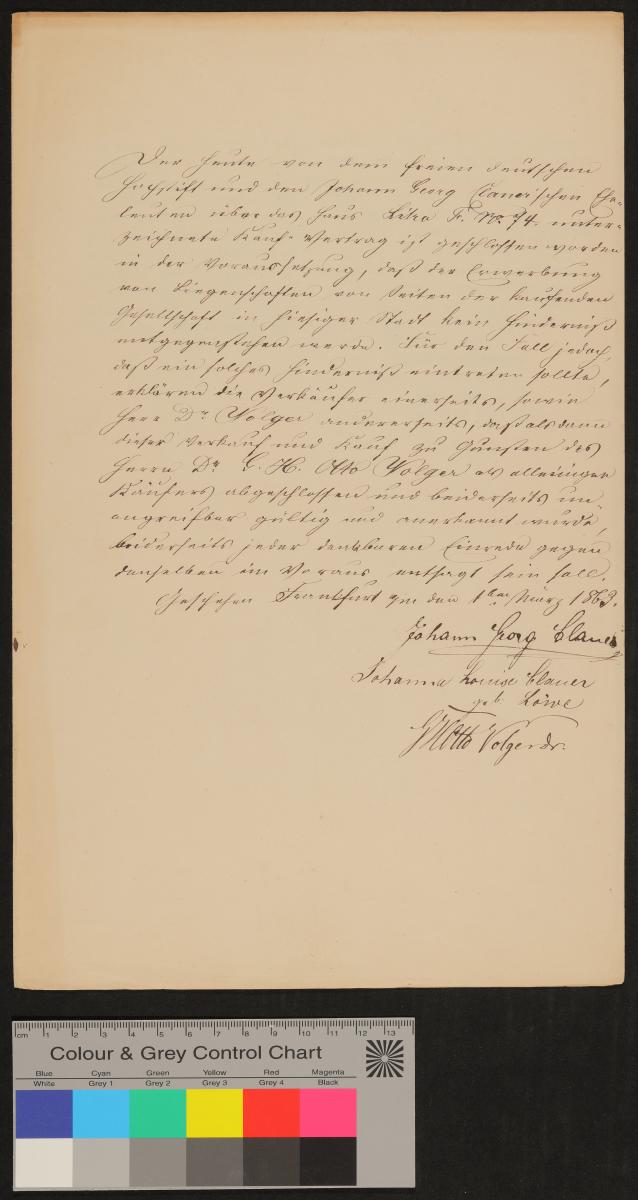 Der heute von dem freien deutschen
Hochstift und den Johann Georg Clauer'schen Ehe-
leuten über das Haus Litra F. No. 74. unter-
zeichnete Kauf-Vertrag ist geschlossen worden
in der Voraussetzung, daß der Erwerbung
von Liegenschaften von Seiten der kaufenden
Gesellschaft in hiesiger Stadt kein Hinderniß
entgegenstehen werde. Für den Fall jedoch,
daß ein solches Hinderniß eintreten sollte,
erklären die Verkäufer einerseits, sowie
Herr Dr. Volger andererseits, daß alsdann
dieser Verkauf und Kauf zu Gunsten des
Herrn Dr. G. H. Otto Volger als alleinigen
Käufers abgeschlossen und beiderseits un-
angreifbar gültig und anerkannt wurde,
beiderseits jeder denkbaren Einrede gegen
denselben im Voraus entsagt sein soll.
Geschehen Frankfurt a/m den 1ten März 1863.
Johann Georg Clauer
Johanna Louise Clauer
geb. Löwe
GH Otto Volger dr.
cm 1 2 3 4 5 6 7 8 9 10 11 12 13
Colour & Grey Control Chart
Blue Cyan Green Yellow Red Magenta
White Grey 1 Grey 2 Grey 3 Grey 4 Black